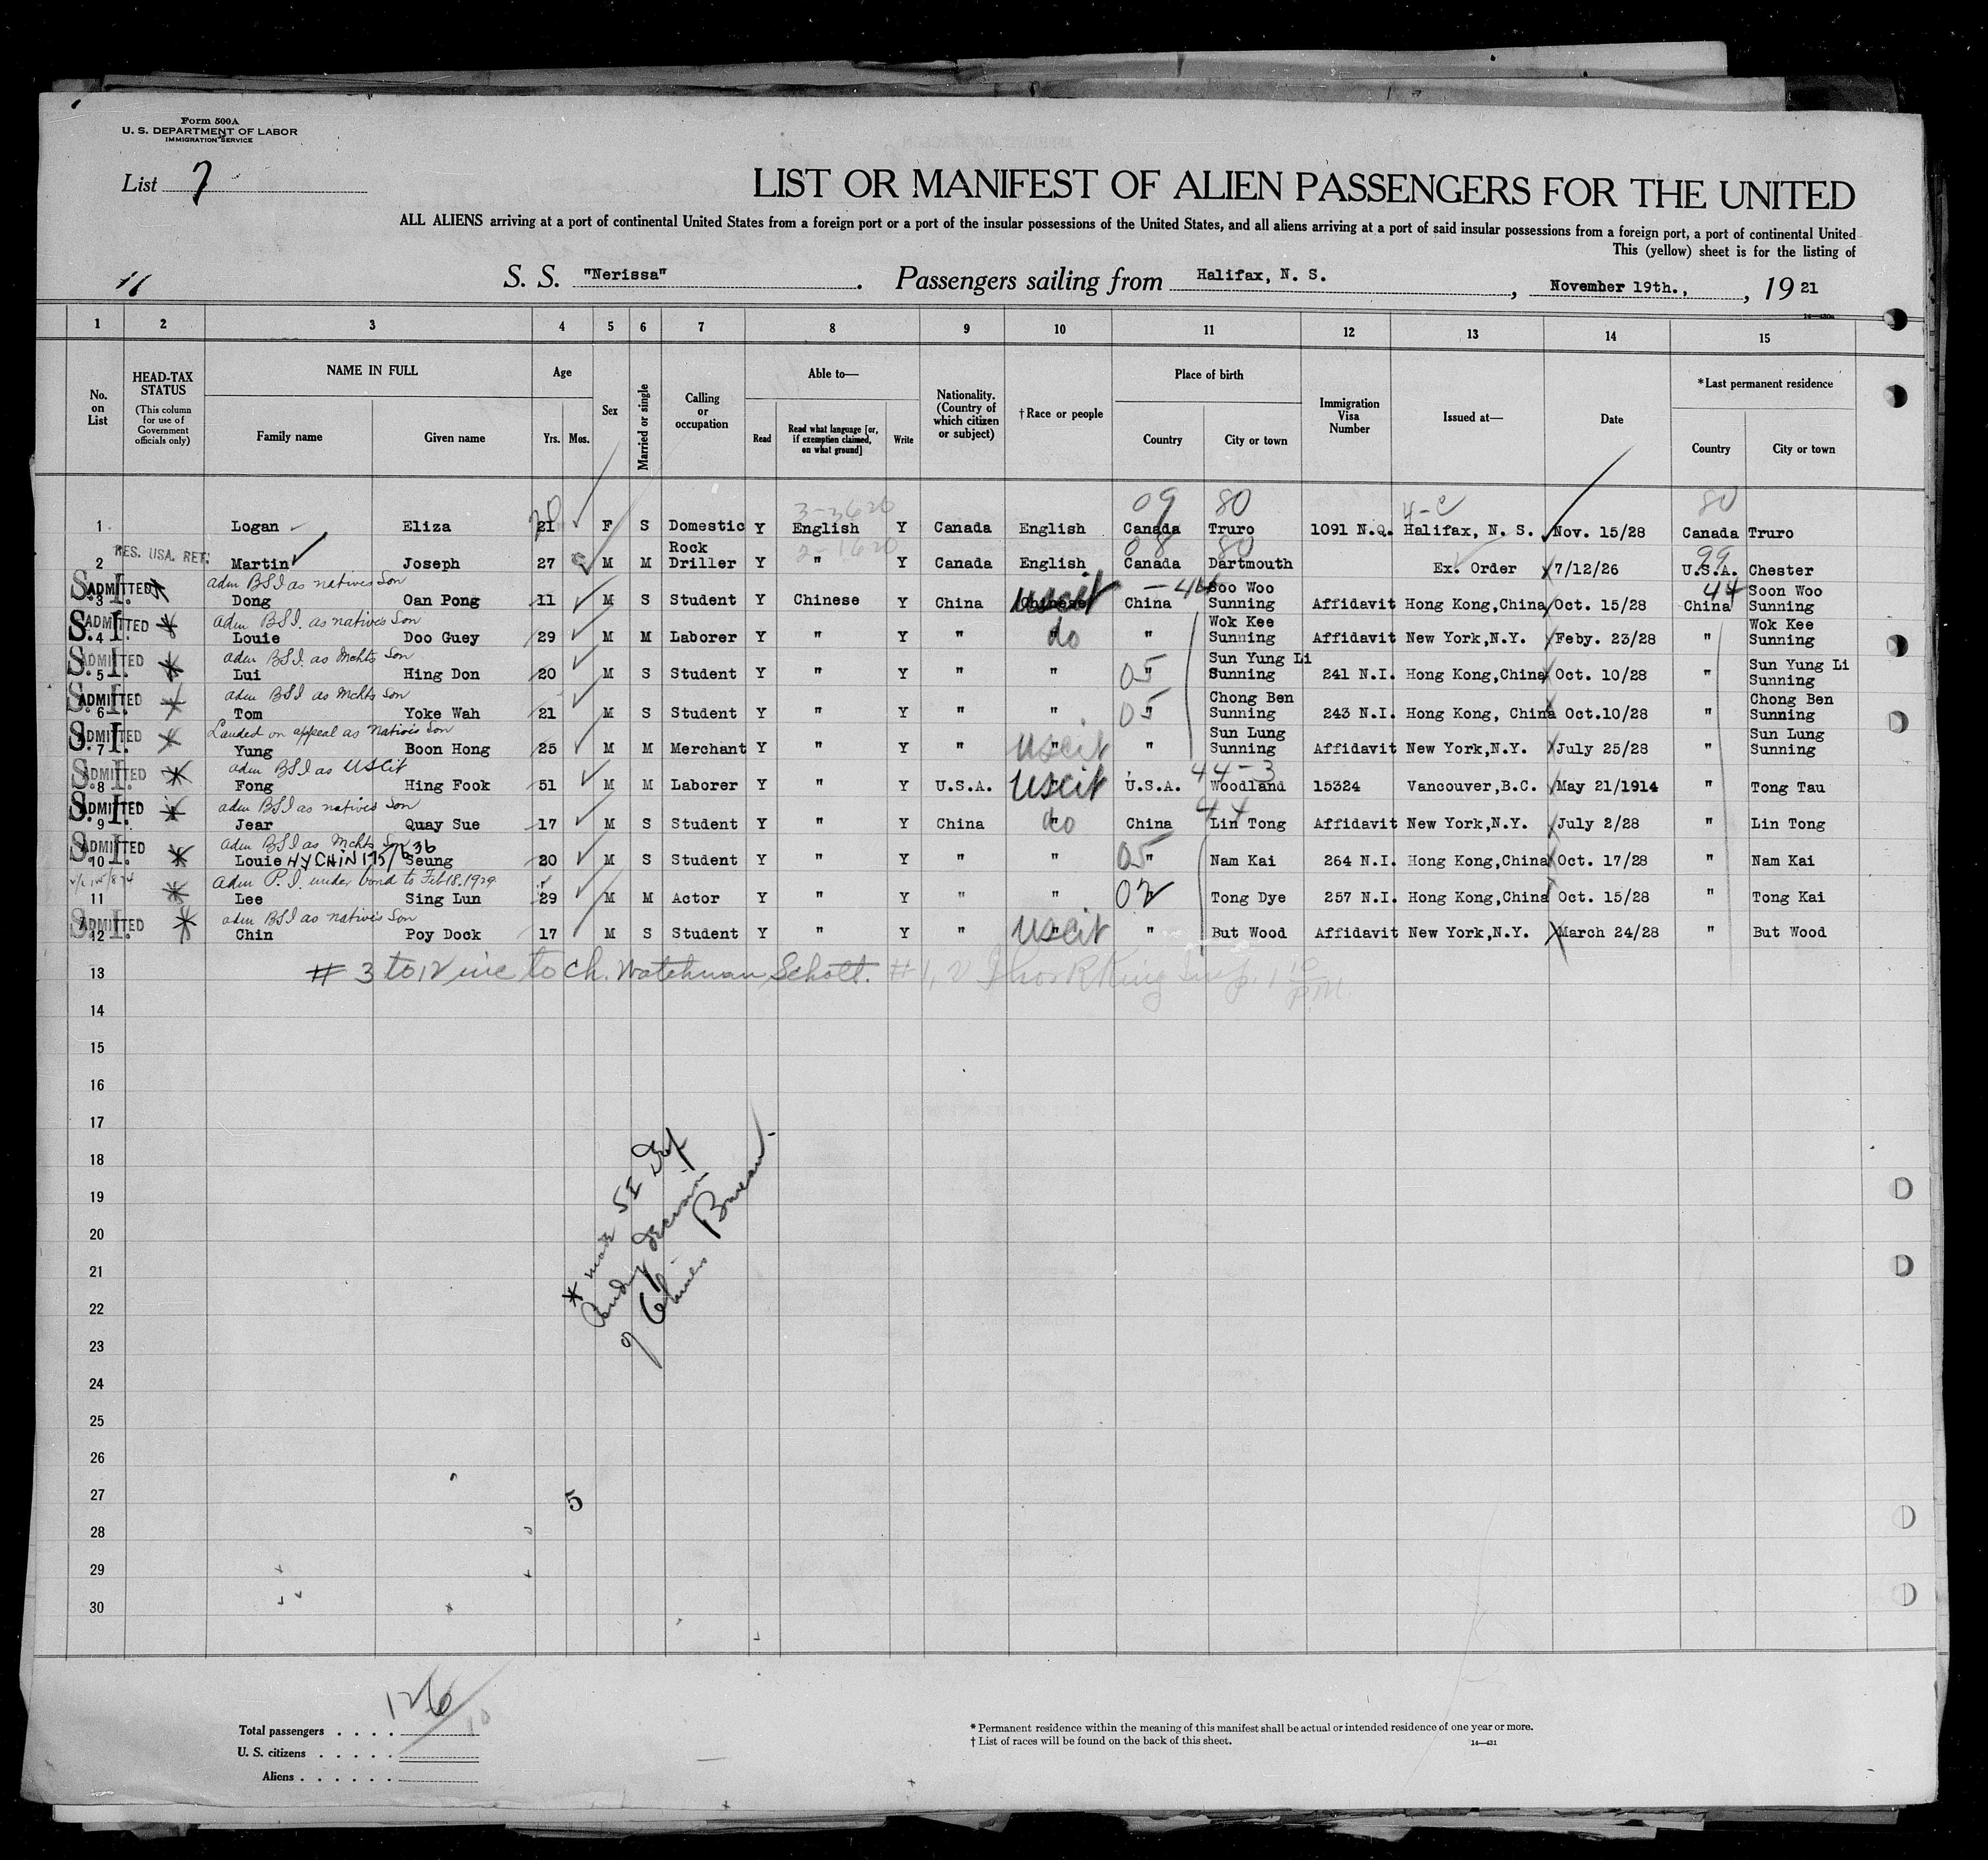 Form 500A
U. S. DEPARTMENT OF LABOR
IMMIGRATION SERVICE
List 7
LIST OR MANIFEST OF ALIEN PASSENGERS FOR THE UNITED
ALL ALIENS arriving at a port of continental United States from a foreign port or a port of the insular possessions of the United States, and all aliens arriving at a port of said insular possessions from a foreign port, a port of continental United
This (yellow) sheet is for the listing of
S. S. "Nerissa". Passengers sailing from Halifax, N. S., November 19th., , 19 21
14—430a
1 2 3 4 5 6 7 8 9 10 11 12 13 14 15
No. on List
HEAD-TAX STATUS (This column for use of Government officials only)
NAME IN FULL
Family name
Given name
Age
Yrs. Mos.
Sex
Married or single
Calling or occupation
Able to—
Read
Read what language [or, if exemption claimed, on what ground]
Write
Nationality. (Country of which citizen or subject)
†Race or people
Place of birth
Country
City or town
Immigration Visa Number
Issued at—
Date
*Last permanent residence
Country
City or town
3-3620 09 80 4-C 80
1 Logan Eliza 21 F S Domestic Y English Y Canada English Canada Truro 1091 N.Q. Halifax, N. S. Nov. 15/28 Canada Truro
RES. USA. RET. 2-1620 08 80 99
2 Martin Joseph 27 M M Rock Driller Y " Y Canada English Canada Dartmouth Ex. Order 7/12/26 U.S.A. Chester
ADMITTED S.I. adm BSI as natives Son uscit 44 44
3 Dong Oan Pong 11 M S Student Y Chinese Y China Chinese China Soo Woo Sunning Affidavit Hong Kong,China Oct. 15/28 China Soon Woo Sunning
ADMITTED S.I. adm BSI. as natives Son do
4 Louie Doo Guey 29 M M Laborer Y " Y " " " Wok Kee Sunning Affidavit New York,N.Y. Feby. 23/28 " Wok Kee Sunning
ADMITTED S.I. adm BSI. as Mchts Son 05
5 Lui Hing Don 20 M S Student Y " Y " " " Sun Yung Li Sunning 241 N.I. Hong Kong,China Oct. 10/28 " Sun Yung Li Sunning
ADMITTED S.I. adm BSI as Mchts Son 05
6 Tom Yoke Wah 21 M S Student Y " Y " " " Chong Ben Sunning 243 N.I. Hong Kong, China Oct.10/28 " Chong Ben Sunning
ADMITTED S.I. Landed on appeal as natives Son uscit
7 Yung Boon Hong 25 M M Merchant Y " Y " " " Sun Lung Sunning Affidavit New York,N.Y. July 25/28 " Sun Lung Sunning
ADMITTED S.I. adm BSI as uscit uscit 44-3
8 Fong Hing Fook 51 M M Laborer Y " Y U.S.A. U.S.A. Woodland 15324 Vancouver,B.C. May 21/1914 " Tong Tau
ADMITTED S.I. adm BSI as natives Son do 44
9 Jear Quay Sue 17 M S Student Y " Y China " China Lin Tong Affidavit New York,N.Y. July 2/28 " Lin Tong
ADMITTED S.I. adm BSI as Mchts Son 05
10 Louie HY CHIN 175/636 Seung 20 M S Student Y " Y " " " Nam Kai 264 N.I. Hong Kong,China Oct. 17/28 " Nam Kai
adm P.I. under bond to Feb 18. 1929 02
11 Lee Sing Lun 29 M M Actor Y " Y " " " Tong Dye 257 N.I. Hong Kong,China Oct. 15/28 " Tong Kai
ADMITTED S.I. adm BSI as natives Son uscit
12 Chin Poy Dock 17 M S Student Y " Y " " " But Wood Affidavit New York,N.Y. March 24/28 " But Wood
13 # 3 to 12 inc to Ch. Watchman Schott. # 1, 2
14
15
16
17
18
19
20
21
22
23
24
25
26
27
28
29
30
* made SI
Pending decision
of Chinese Bureau.
5
126
10
Total passengers . . . .
U. S. citizens . . . . .
Aliens . . . . . .
* Permanent residence within the meaning of this manifest shall be actual or intended residence of one year or more.
† List of races will be found on the back of this sheet.
14—431